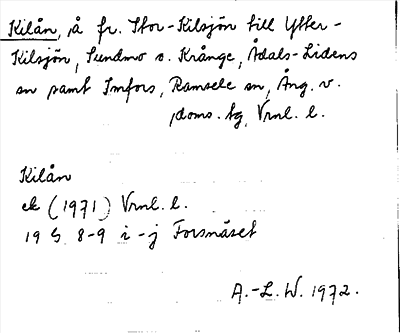 Kilån, å fr. Stor-Kilsjön till Ytter-
Kilsjön, Sundmo o. Krånge, Ådals-Lidens
sn samt Imfors, Ramsele sn, Ång. v.
doms. tg, Vrnl. l.
Kilån
ek (1971) Vrnl. l.
19 G 8-9 i-j Forsnäset
A.-L. W. 1972.